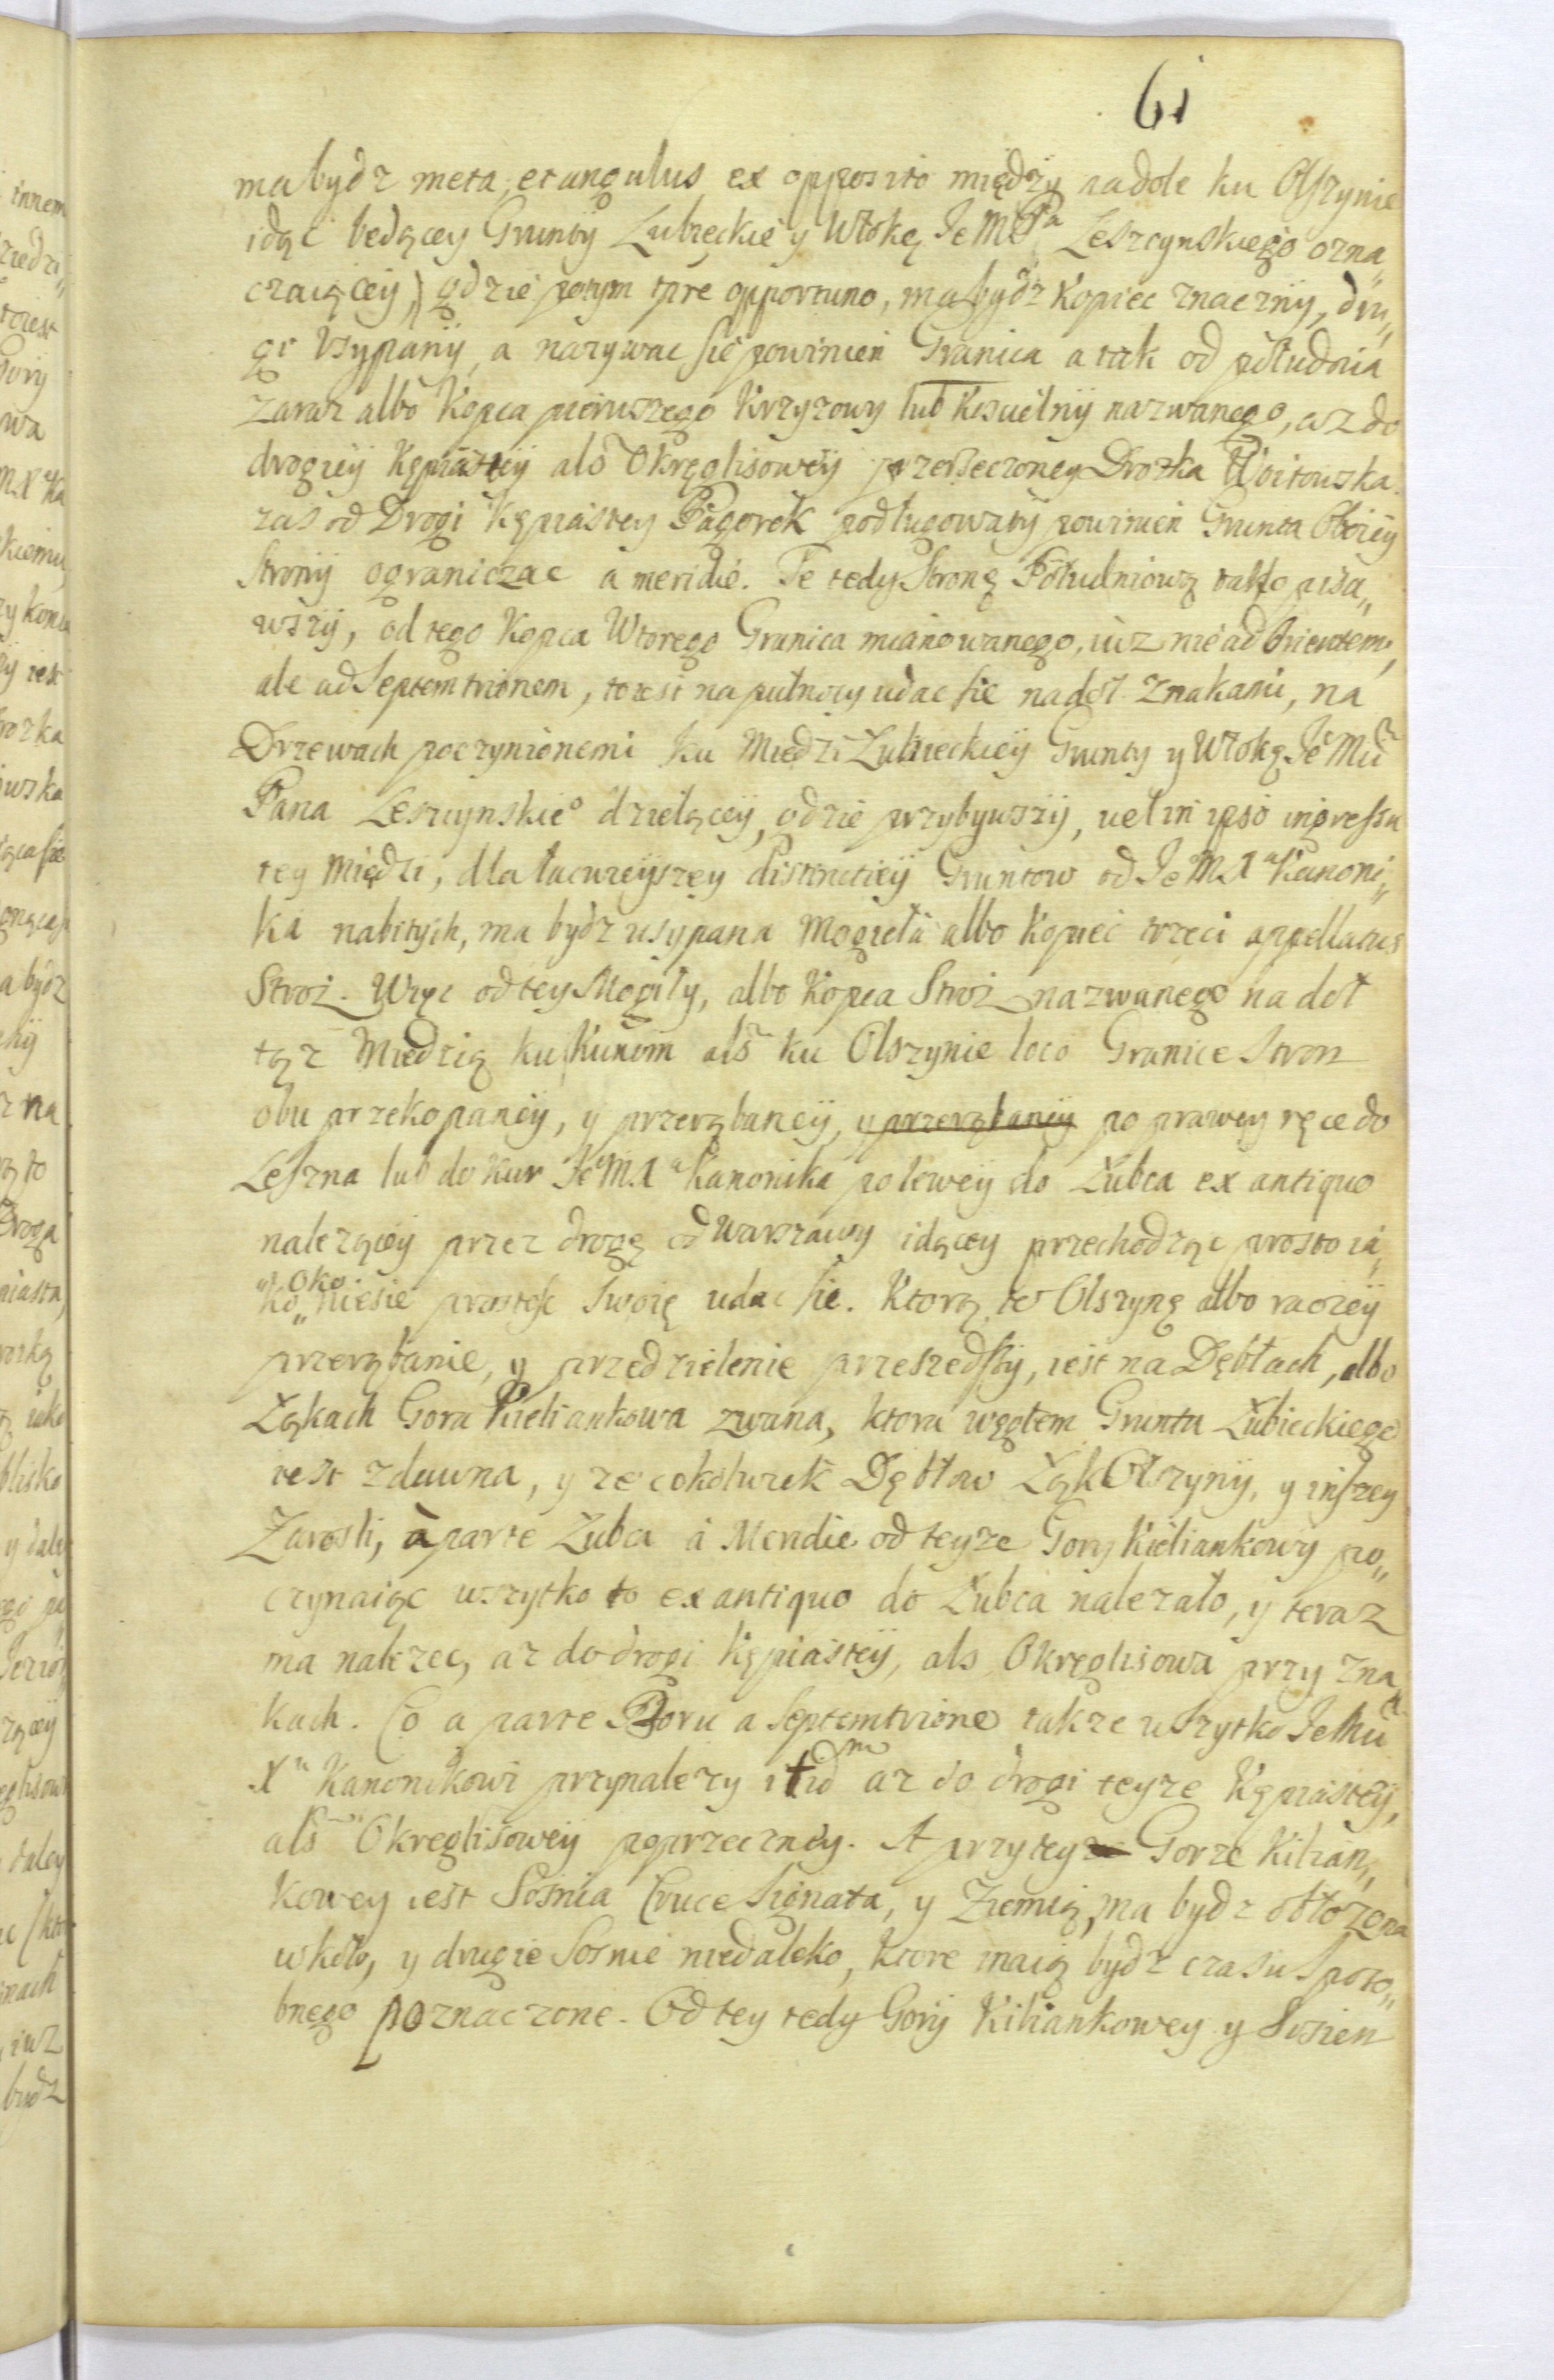 61
ma bydz meta, et angulus ex opposito między na dole ku Olszynie
idąc będącey Grunty Łubieckie y Włokę Je Mći Pa Leszcynskiego ozna„
czaiącey) gdzie potym tpre opportuno, ma bydz Kopiec znaczny, dru„
gi Usypany, a nazywac się powinien Granica a tak od południa
zaraz albo Kopca pierwszego Krzyzowy lub nazwanego, az do
drogiey Kępiastey als Okręglisowey przerzeczoney Drozka Woitowska.
zas od Drogi Kępiastey Pagorek podługowaty powinien Grunta Oboiey
Strony ograniczac a meridie. Te tedy Stronę Południową takto pisa„
wszy, od tego Kopca Wtorego Granica mianowanego, iuz nie ad Orientem,
ale ad Septemtrionem, to iest na pułnocy udac się na doł znakami, na
Drzewach poczynionemi ku Miedzi Łubieckiey Grunty y Włokę Je Mći
Pana Leszcynskieo dzielącey, gdzie przybywszy, vel in ipso ingressu
tey Miedzi, dla łacwieyszey distinctiey Gruntow od Je M X a Kanoni„
ka nabitych, ma bydz usypana Mogieła albo Kopiec trzeci appellatus
Stroz. Więc od tey Mogiły, albo Kopca Stroz nazwanego na doł
tąz Miedzią ku Kunom als ku Olszynie loco Granice Stron
obu przekopaney, y przerąbaney, y przerąbaney po prawey ręce do
Leszna lub do Kur Je M X a Kanonika po lewey do Łubca ex antiquo
nalezącey przez drogę od Warszawy idącey przechodząc prosto ia„
ko oko niesie prostosc swoię udac się. Ktorą te Olszynę albo raczey
przerąbanie, y przedzielenie przeszedszy, iest na Dębłach, albo
Łąkach Gora Kieliankowa zwana, ktora węgłem Gruntu Łubieckiego
iest zdawna, y ze cokolwiek Dębłow Łąk Olszyny, y inszey
Zarosli, à parte Łubca à Meridie od teyze Gory Kieliankowy po„
czynaiąc wszytko to ex antiquo do Łubca nalezało, y teraz
ma nalezec, az do drogi Kępiastey, als Okręglisowa przy Zna„
kach. Co a parte Boru a Septemtrione takze wszytko Je Mći
X u Kanonikowi przynalezy az do drogi teyze Kępiastey,
als Okreglisowey poprzeczney. A przy teyze Gorze Kilian„
kowey iest Sosnia Cruce Signata, y Ziemią ma bydz obłozona
wkoło, y drugie Sosnie niedaleko, ktore maią bydz czasu Sposo„
bnego poznaczone. Od tey tedy Gory Kiliankowey y Sosien